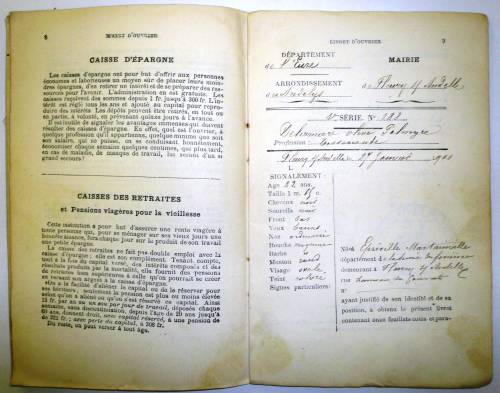 8 LIVRET D'OUVRIER
CAISSE D'ÉPARGNE
Les caisses d'épargne ont pour but d'offrir aux personnes
économes et laborieuses un moyen sûr de placer leurs moin-
dres épargnes, d'en retirer un intérêt et de se préparer des res-
sources pour l'avenir. L'administration en est gratuite. Les
caisses reçoivent des sommes depuis 1 fr. jusqu'à 300 fr. L'in-
térêt est réglé tous les ans et ajouté au capital pour repro-
duire des intérêts. Les dépôts peuvent être retirés, en tout ou
en partie, à volonté, en prévenant quelques jours à l'avance.
Il est facile de signaler les avantages immenses qui doivent
résulter des caisses d'épargne. En effet, quel est l'ouvrier, à
quelque profession qu'il appartienne, quelque minime que soit
son salaire, qui ne puisse, en se conduisant honnêtement,
économiser chaque semaine quelques centimes, qui plus tard,
en cas de maladie, de manque de travail, les seront d'un si
grand secours!
CAISSES DES RETRAITES
et Pensions viagères pour la vieillesse
Cette institution a pour but d'assurer une rente viagère à
toute personne qui, pour se ménager sur ses vieux jours une
honnête aisance, fera chaque jour sur le produit de son travail
une petite épargne.
La caisse des retraites ne fait pas double emploi avec la
caisse d'épargne; elle en est le complément. Tenant compte,
tout à la fois du capital versé, des intérêts composés et des
résultats produits par la mortalité, elle fournit des pensions
de retraites bien supérieures à celle qu'on pourrait se créer
en versant son argent à la caisse d'épargne.
On a la faculté d'aliéner le capital ou de le réserver pour
ses héritiers; seulement la pension est plus ou moins élevée
selon qu'on a aliéné ou qu'on s'est réservé ce capital. Ainsi
15 fr. par an ou un sou par jour de travail, déposés chaque
année, sans discontinuation, depuis l'âge de 20 ans jusqu'à
60 ans, donnent droit, avec capital réservé, à une pension de
221 fr.; avec perte du capital, à 308 fr.
Du reste, on peut verser à tout âge.
LIVRET D'OUVRIER 9
DÉPARTEMENT
de l'Eure
MAIRIE
ARRONDISSEMENT
d'Andelys
de Fleury s/ Andelle
SÉRIE. N° 122
Profession
Fleury s/ Andelle 27 Janvier
SIGNALEMENT:
Age 22 ans.
Taille 1 m.
Cheveux noirs
Sourcils noirs
Front bas
Yeux
Nez ordinaire
Bouche moyenne
Barbe
Menton rond
Visage ovale
Teint
Signes particuliers:
Né à
département
demeurant à Fleury s/ Andelle
rue
ayant justifié de son identité et de sa
position, a obtenu le présent livret
contenant onze feuillets cotés et para-